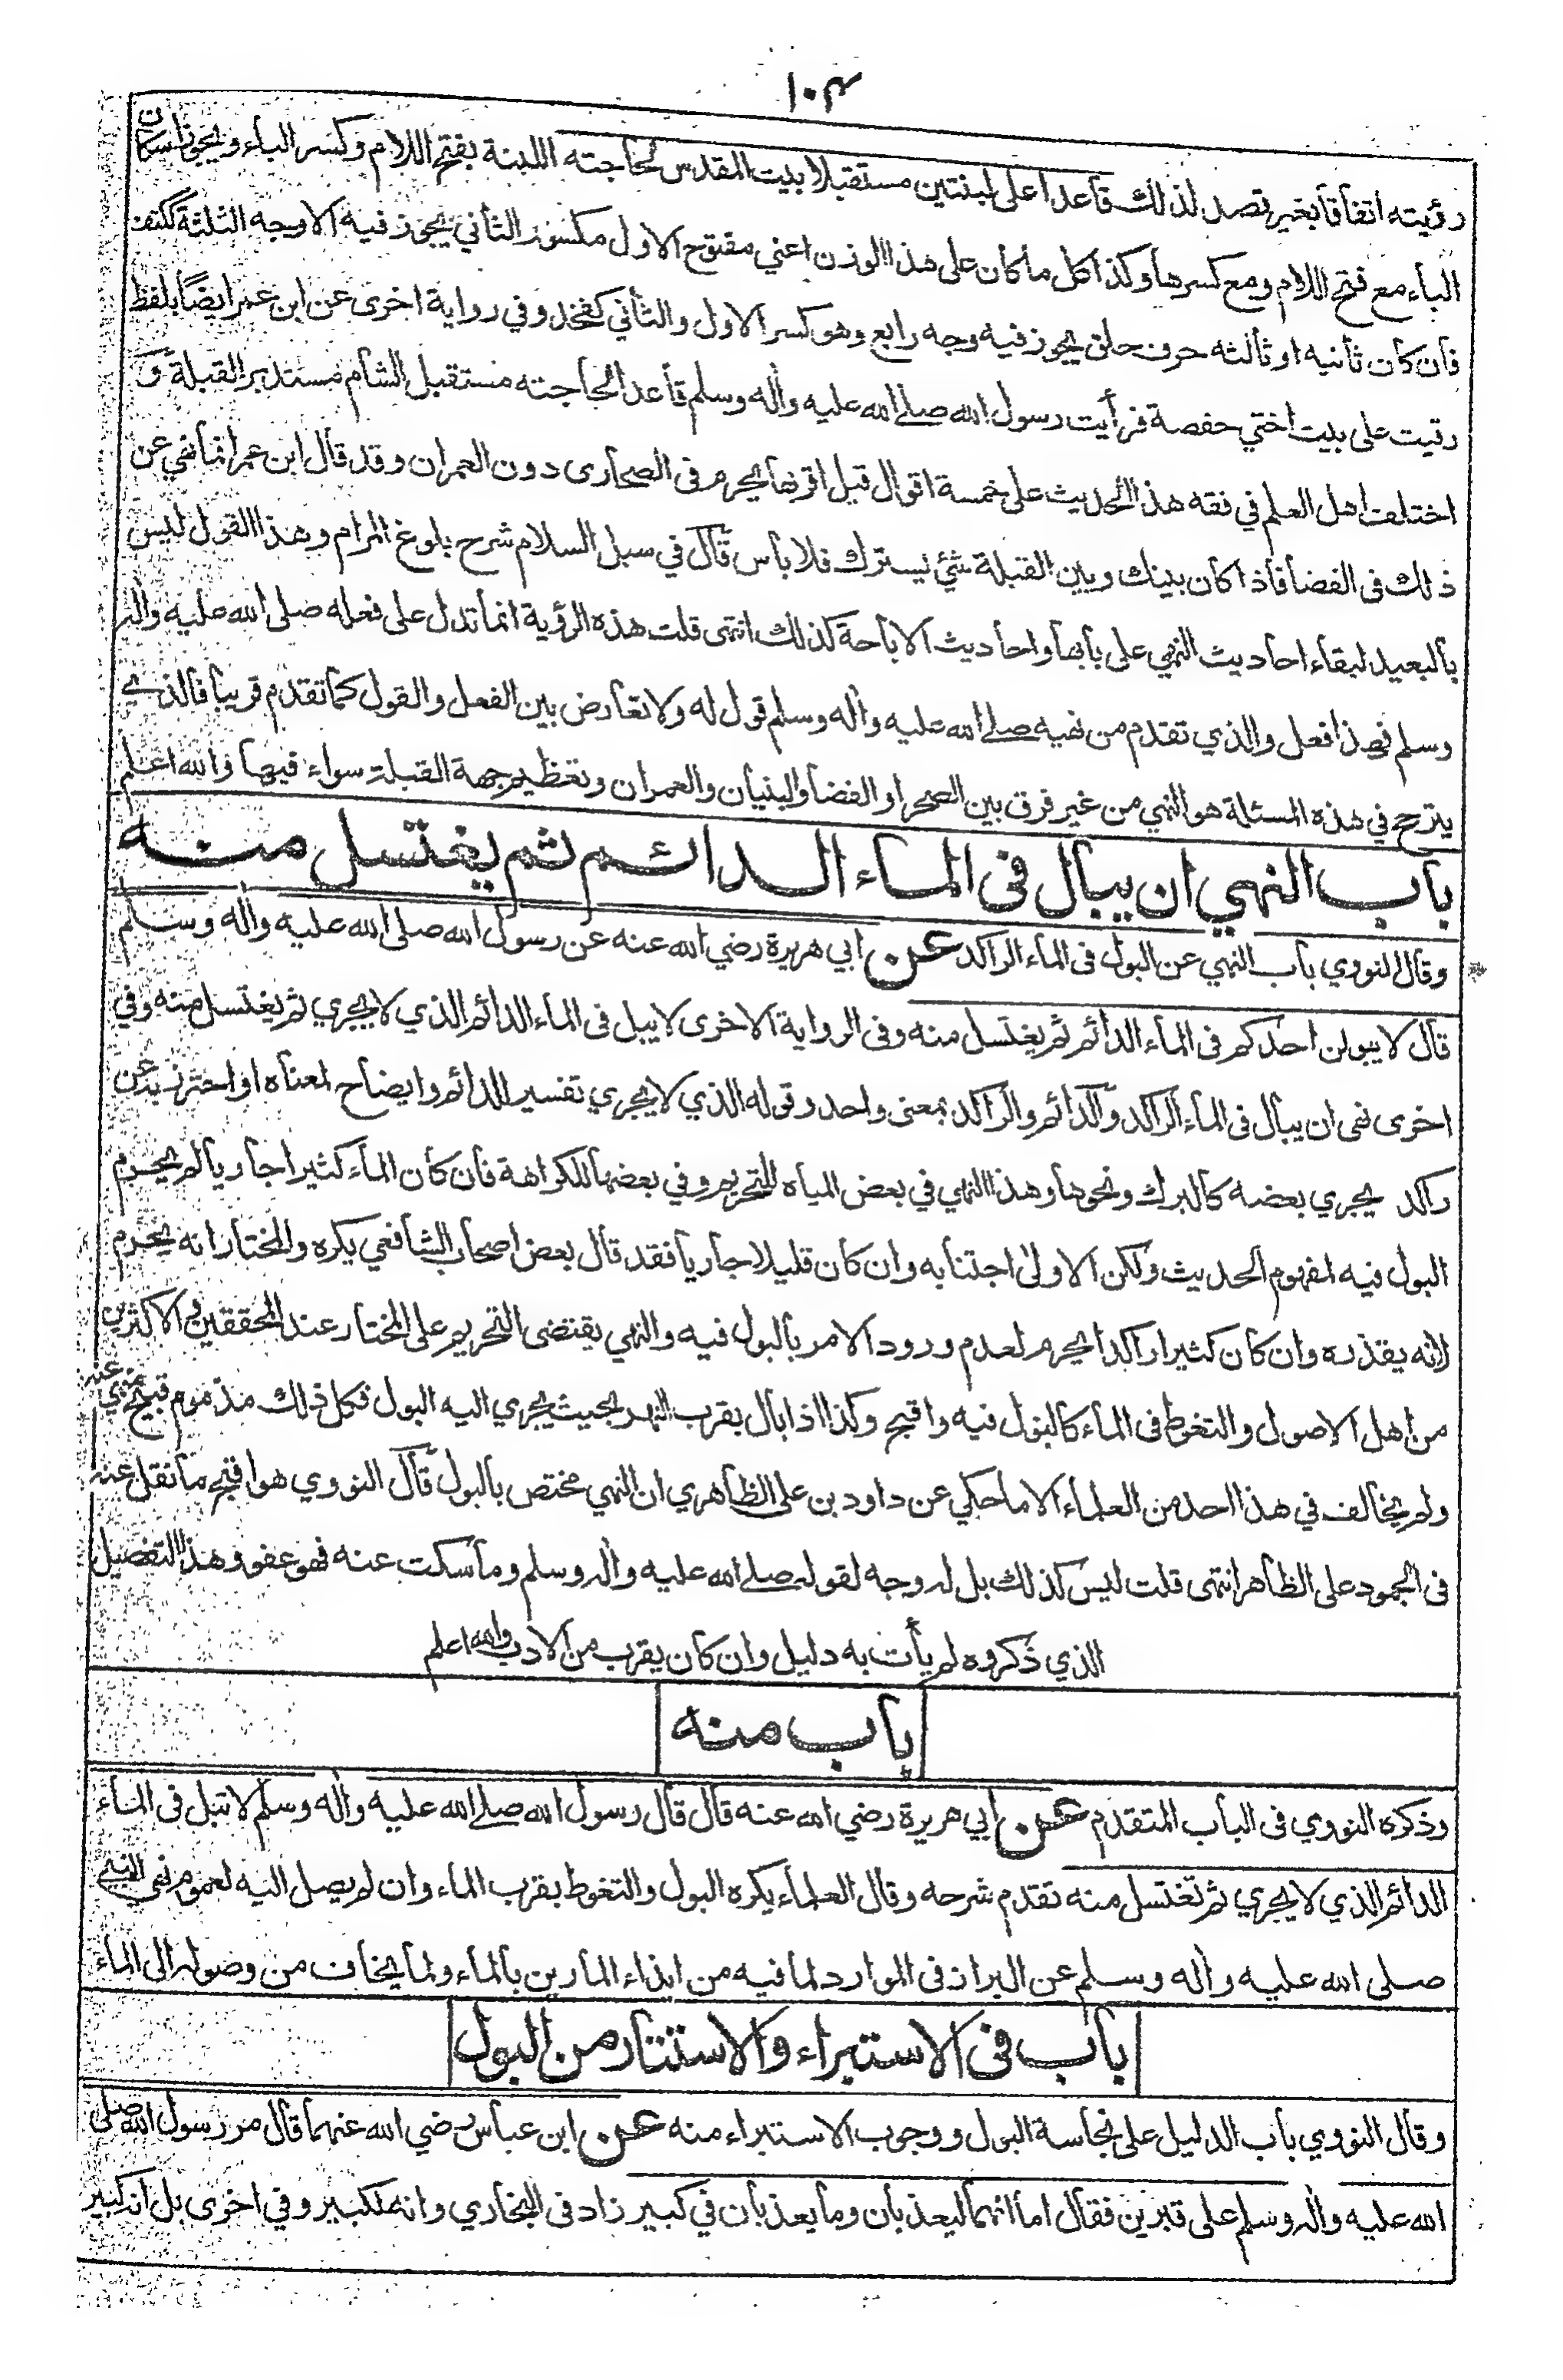 ١٠٣
رؤيته اتفاقا بغير قصد لذلك قاعدا على لبنتين مستقبلا بيت المقدس لحاجته اللبنة بفتح اللام وكسر الباء ويجوز اسكان
الباء مع فتح اللام ومع كسرها وكذا كل ما كان على هذا الوزن اعني مفتوح الاول مكسور الثاني يجوز فيه الاوجه الثلثة ككتف
فان كان ثانيه او ثالثه حرف حلق يجوز فيه وجه رابع وهو كسر الاول والثاني كفخذ وفي رواية اخرى عن ابن عمر ايضًا بلفظ
رقيت على بيت اختي حفصة فرأيت رسول الله صلى الله عليه وأله وسلم قاعدا لحاجته مستقبل الشام مستدبر القبلة و
اختلف اهل العلم في فقه هذا الحديث على خمسة اقوال قيل اقربها يحرم فى الصحارى دون العمران وقد قال ابن عمر انما نهي عن
ذلك فى الفضا فاذا كان بينك وبين القبلة شئ يسترك فلا بأس قال في سبل السلام شرح بلوغ المرام وهذا القول ليس
بالبعيد لبقاء احاديث النهي على بابها واحاديث الاباحة كذلك انتهى قلت هذه الرؤية انما تدل على فعله صلى الله عليه وأله
وسلم فهذا فعل والذي تقدم من نهيه صلى الله عليه وأله وسلم قول له ولا تعارض بين الفعل والقول كما تقدم قريبا فالذي
يترجح في هذه المسئلة هو النهي من غير فرق بين الصحرا والفضا والبنيان والعمران وتعظيم جهة القبلة سواء فيها والله اعلم
باب النهي ان يبال فى الماء الدائم ثم يغتسل منه
وقال النووي باب النهي عن البول فى الماء الراكد عن ابي هريرة رضي الله عنه عن رسول الله صلى الله عليه وأله وسلم
قال لا يبولن احدكم فى الماء الدائم ثم يغتسل منه وفى الرواية الاخرى لا يبل فى الماء الدائم الذي لا يجري ثم يغتسل منه وفي
اخرى نهى ان يبال فى الماء الراكد والدائم والراكد بمعنى واحد وقوله الذي لا يجري تفسير للدائم وايضاح لمعناه او احترز به عن
راكد يجري بعضه كالبرك ونحوها وهذا النهي في بعض المياه للتحريم وفي بعضها للكراهة فان كان الماء كثيرا جاريا لم يحرم
البول فيه لمفهوم الحديث ولكن الاولى اجتنابه وان كان قليلا جاريا فقد قال بعض اصحاب الشافعي يكره والمختار انه يحرم
لانه يقذره وان كان كثيرا راكدا لم يحرم لعدم ورود الامر بالبول فيه والنهي يقتضى التحريم على المختار عند المحققين والاكثرين
من اهل الاصول والتغوط فى الماء كالبول فيه واقبح وكذا اذا بال بقرب النهر بحيث يجري اليه البول فكل ذلك مذموم قبيح منهي عنه
ولم يخالف في هذا احد من العلماء الا ما حكي عن داود بن على الظاهري ان النهي مختص بالبول قال النووي هو اقبح ما نقل عنه
فى الجمود على الظاهر انتهى قلت ليس كذلك بل له وجه لقوله صلى الله عليه وأله وسلم وما سكت عنه فهو عفو وهذا التفصيل
الذي ذكروه لم يأت به دليل وان كان يقرب من الادب والله اعلم
باب منه
وذكره النووي فى الباب المتقدم عن ابي هريرة رضي الله عنه قال قال رسول الله صلى الله عليه وأله وسلم لا تبل فى الماء
الدائم الذي لا يجري ثم تغتسل منه تقدم شرحه وقال العلماء يكره البول والتغوط بقرب الماء وان لم يصل اليه لعموم نهي النبي
صلى الله عليه وأله وسلم عن البراز فى الموارد لما فيه من ايذاء المارين بالماء ولما يخاف من وصوله الى الماء
باب فى الاستبراء والاستتار من البول
وقال النووي باب الدليل على نجاسة البول ووجوب الاستبراء منه عن ابن عباس رضي الله عنهما قال مر رسول الله صلى
الله عليه وأله وسلم على قبرين فقال اما انهما ليعذبان وما يعذبان في كبير زاد فى البخاري وانه لكبير وفي اخرى بل انه كبير